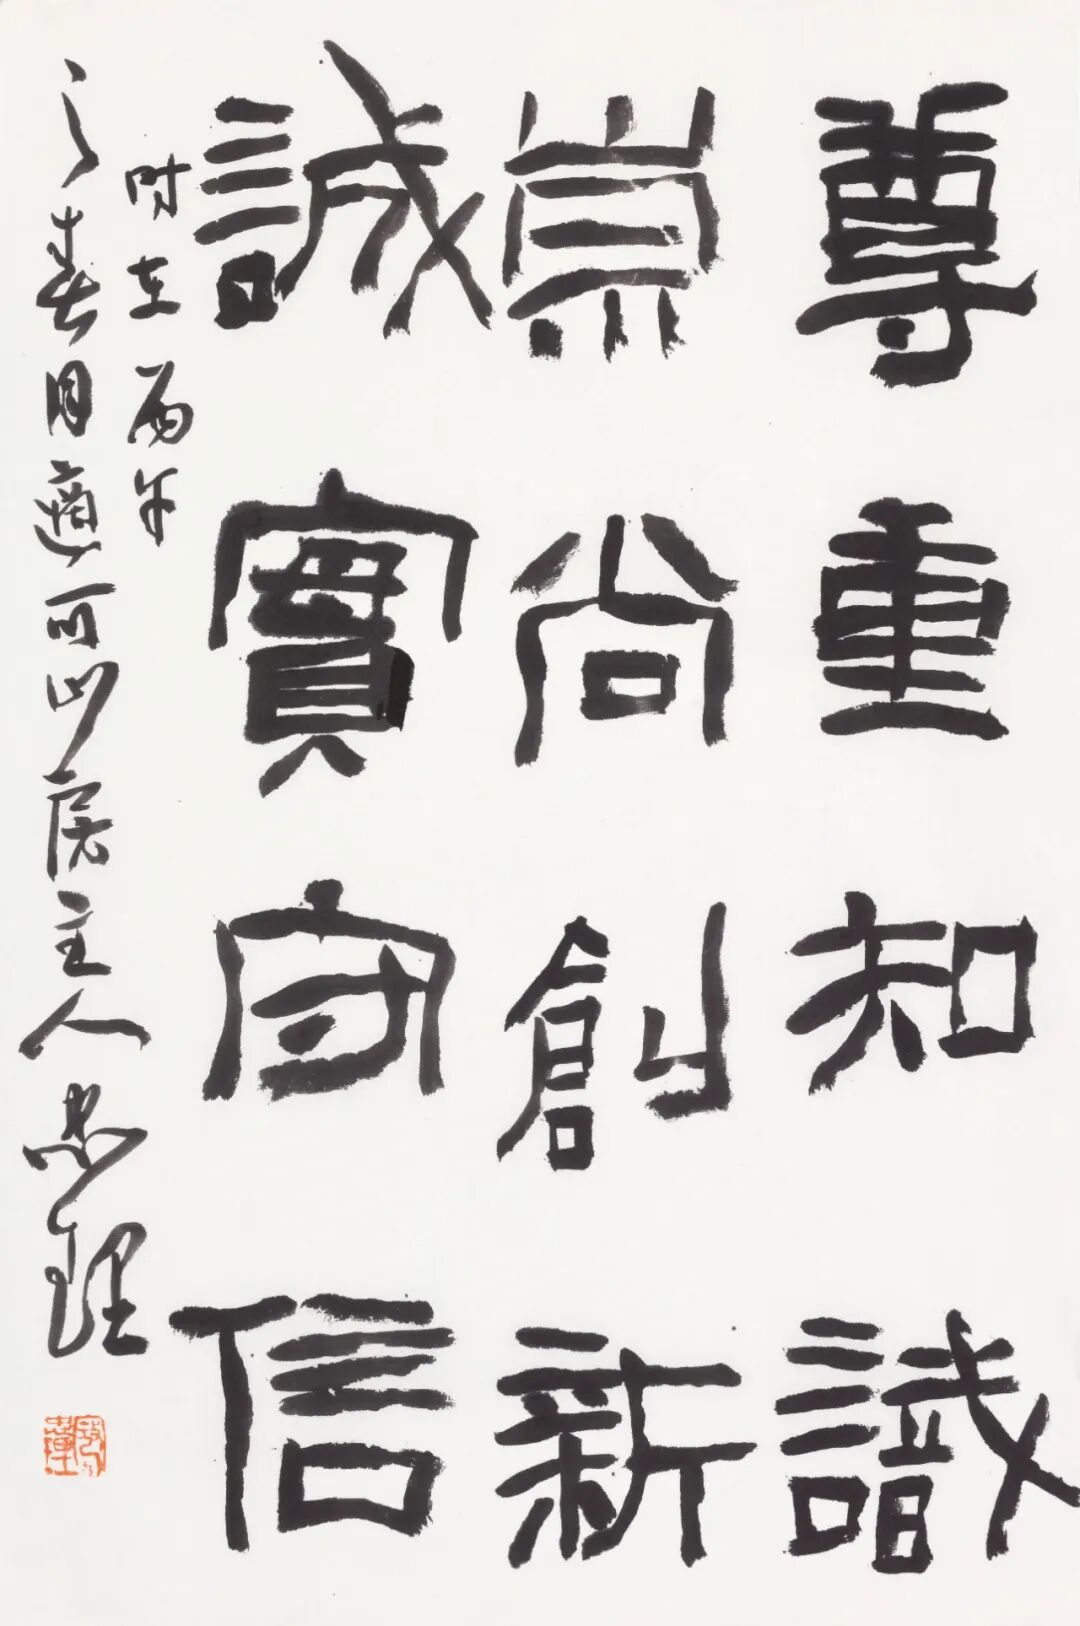 尊重知識
崇尚創新
誠實守信
時在丙午
之春月適可以居主人忠理